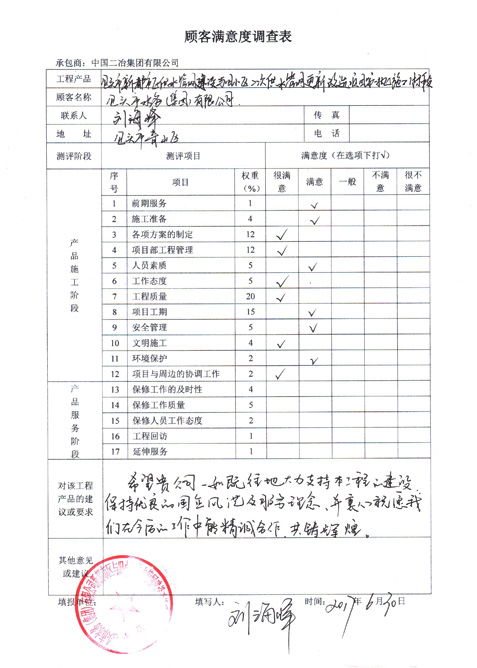 顾客满意度调查表
承包商：中国二冶集团有限公司
工程产品
顾客名称 包头市水务(集团)有限公司
联系人 刘海峰 传 真
地 址 包头市青山区 电 话
测评阶段 测评项目 满意度（在选项下打√）
序号 项目 权重（%） 很满意 满意 一般 不满意 很不满意
产品施工阶段
1 前期服务 1 √
2 施工准备 4 √
3 各项方案的制定 12 √
4 项目部工程管理 12 √
5 人员素质 5 √
6 工作态度 5 √
7 工程质量 20 √
8 项目工期 15 √
9 安全管理 5 √
10 文明施工 4 √
11 环境保护 2 √
12 项目与周边的协调工作 2 √
产品服务阶段
13 保修工作的及时性 4
14 保修工作质量 5
15 保修人员工作态度 2
16 工程回访 1
17 延伸服务 1
对该工程产品的建议或要求
希望贵公司一如既往地大力支持本工程的建设、
保持优良的国企风范及服务理念，并衷心祝愿我
们在今后的工作中能精诚合作，共铸辉煌。
其他意见或建议
填报单位： 填写人：刘海峰 时间：2017年6月30日